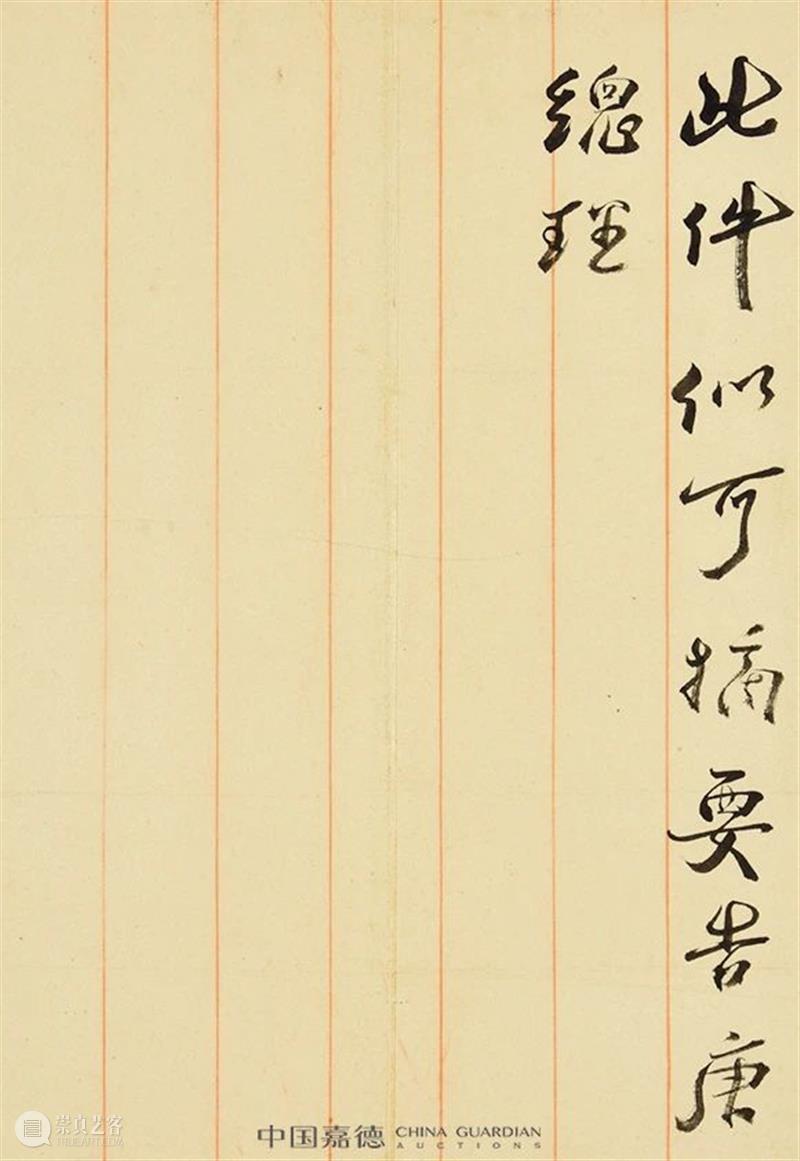 此件似可摘要告唐
總理
中国嘉德 CHINA GUARDIAN
AUCTIONS
崇真艺客
TRUEART.COM